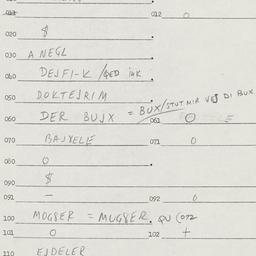 012 O
020 $
030 A NEGL
040 DEJFI-K /RED ink
050 DOKTEJRIM
060 DER BUJX = BUX/STUT MIR VEJ DI BUX
061 O
070 BAJXELE 071 O
080 O
090 $
091 – 092 O
100 MOGGER = MUGGER. QU (072
101 O 102 +
110 EJDELER